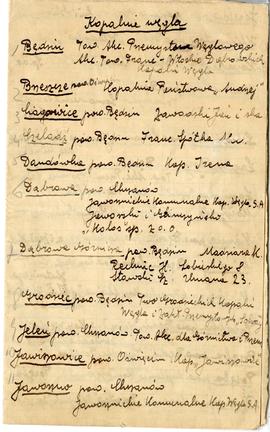 Kopalnie węgla
1, Będzin Tow. Akc. Przemysłu Węglowego
Akc. Tow. Franc-Włoskie Dąbrowskich
Kopalń Węgla
Brzeszcze pow. Oświęc. Kopalnia Państwowa, Andrzej
3, Ciągowice pow. Będzin Zawadzki Jan i ska
4, Czeladź pow. Będzin Franc. Spółka Akc.
5, Dańdówka pow. Będzin Kop. Irena
6, Dąbrowa pow. Chrzanów
Jaworznickie Komunalne Kop. Węgla S.A
Jaworski i
Kolos sp. z o. o.
7, Dąbrowa Górnicza pow. Będzin K.
H. Sobieskiego 8
Sz. 23.
Grodziec pow. Będzin Two Grodzieckich Kopalń
Węgla i Zakł. Przemysł.
Jeleń pow. Chrzanów Tow. Akc. dla Górnictwa i Przem
Jawiszowice pow. Oświęcim Kop. Jawiszowice
Jaworzno pow. Chrzanów
Jaworznickie Komunalne Kop. Węgla S.A